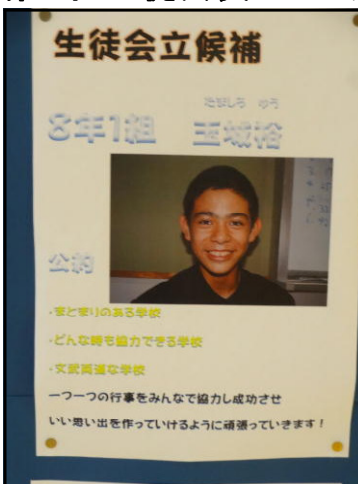 生徒会立候補
たましろ ゆう
8年1組 玉城裕
公約
・まとまりのある学校
・どんな時も協力できる学校
・文武両道な学校
一つ一つの行事をみんなで協力し成功させ
いい思い出を作っていけるように頑張っていきます!